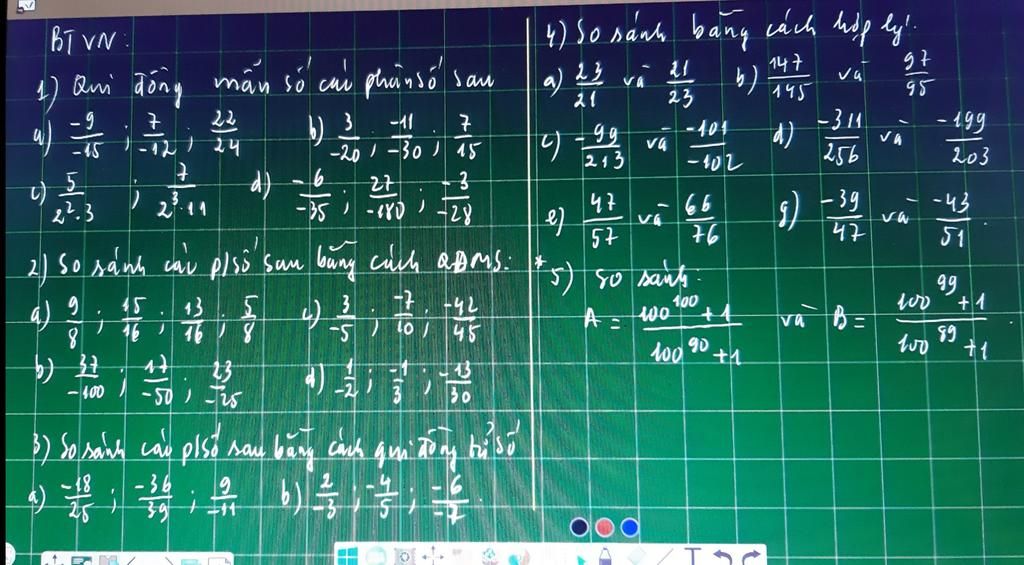 BTVN:
1) Qui đồng mẫn số các phân số sau
a) -9/-15 ; 7/-12 ; 22/24 b) 3/-20 ; -11/-30 ; 7/15
c) 5/2².3 ; 7/2³.11 d) -6/-35 ; 27/-180 ; -3/-28
2) So sánh các p/số sau bằng cách QĐMS:
a) 9/8 ; 15/16 ; 13/16 ; 5/8 c) 3/-5 ; -7/10 ; -42/45
b) 37/-100 ; 17/-50 ; 23/-25 d) 1/-2 ; -1/3 ; -13/30
3) So sánh các p/số sau bằng cách qui đồng tử số
a) -18/25 ; -36/39 ; 9/-11 b) 2/-3 ; -4/5 ; -6/-7
4) So sánh bằng cách hợp lý:
a) 23/21 và 21/23 b) 147/145 và 97/95
c) -99/213 và -101/-102 d) -311/256 và -199/203
e) 47/57 và 66/76 g) -39/47 và -43/51.
*5) So sánh:
A = 100¹⁰⁰+1/100⁹⁰+1 và B = 100⁹⁹+1/100⁸⁹+1.
T